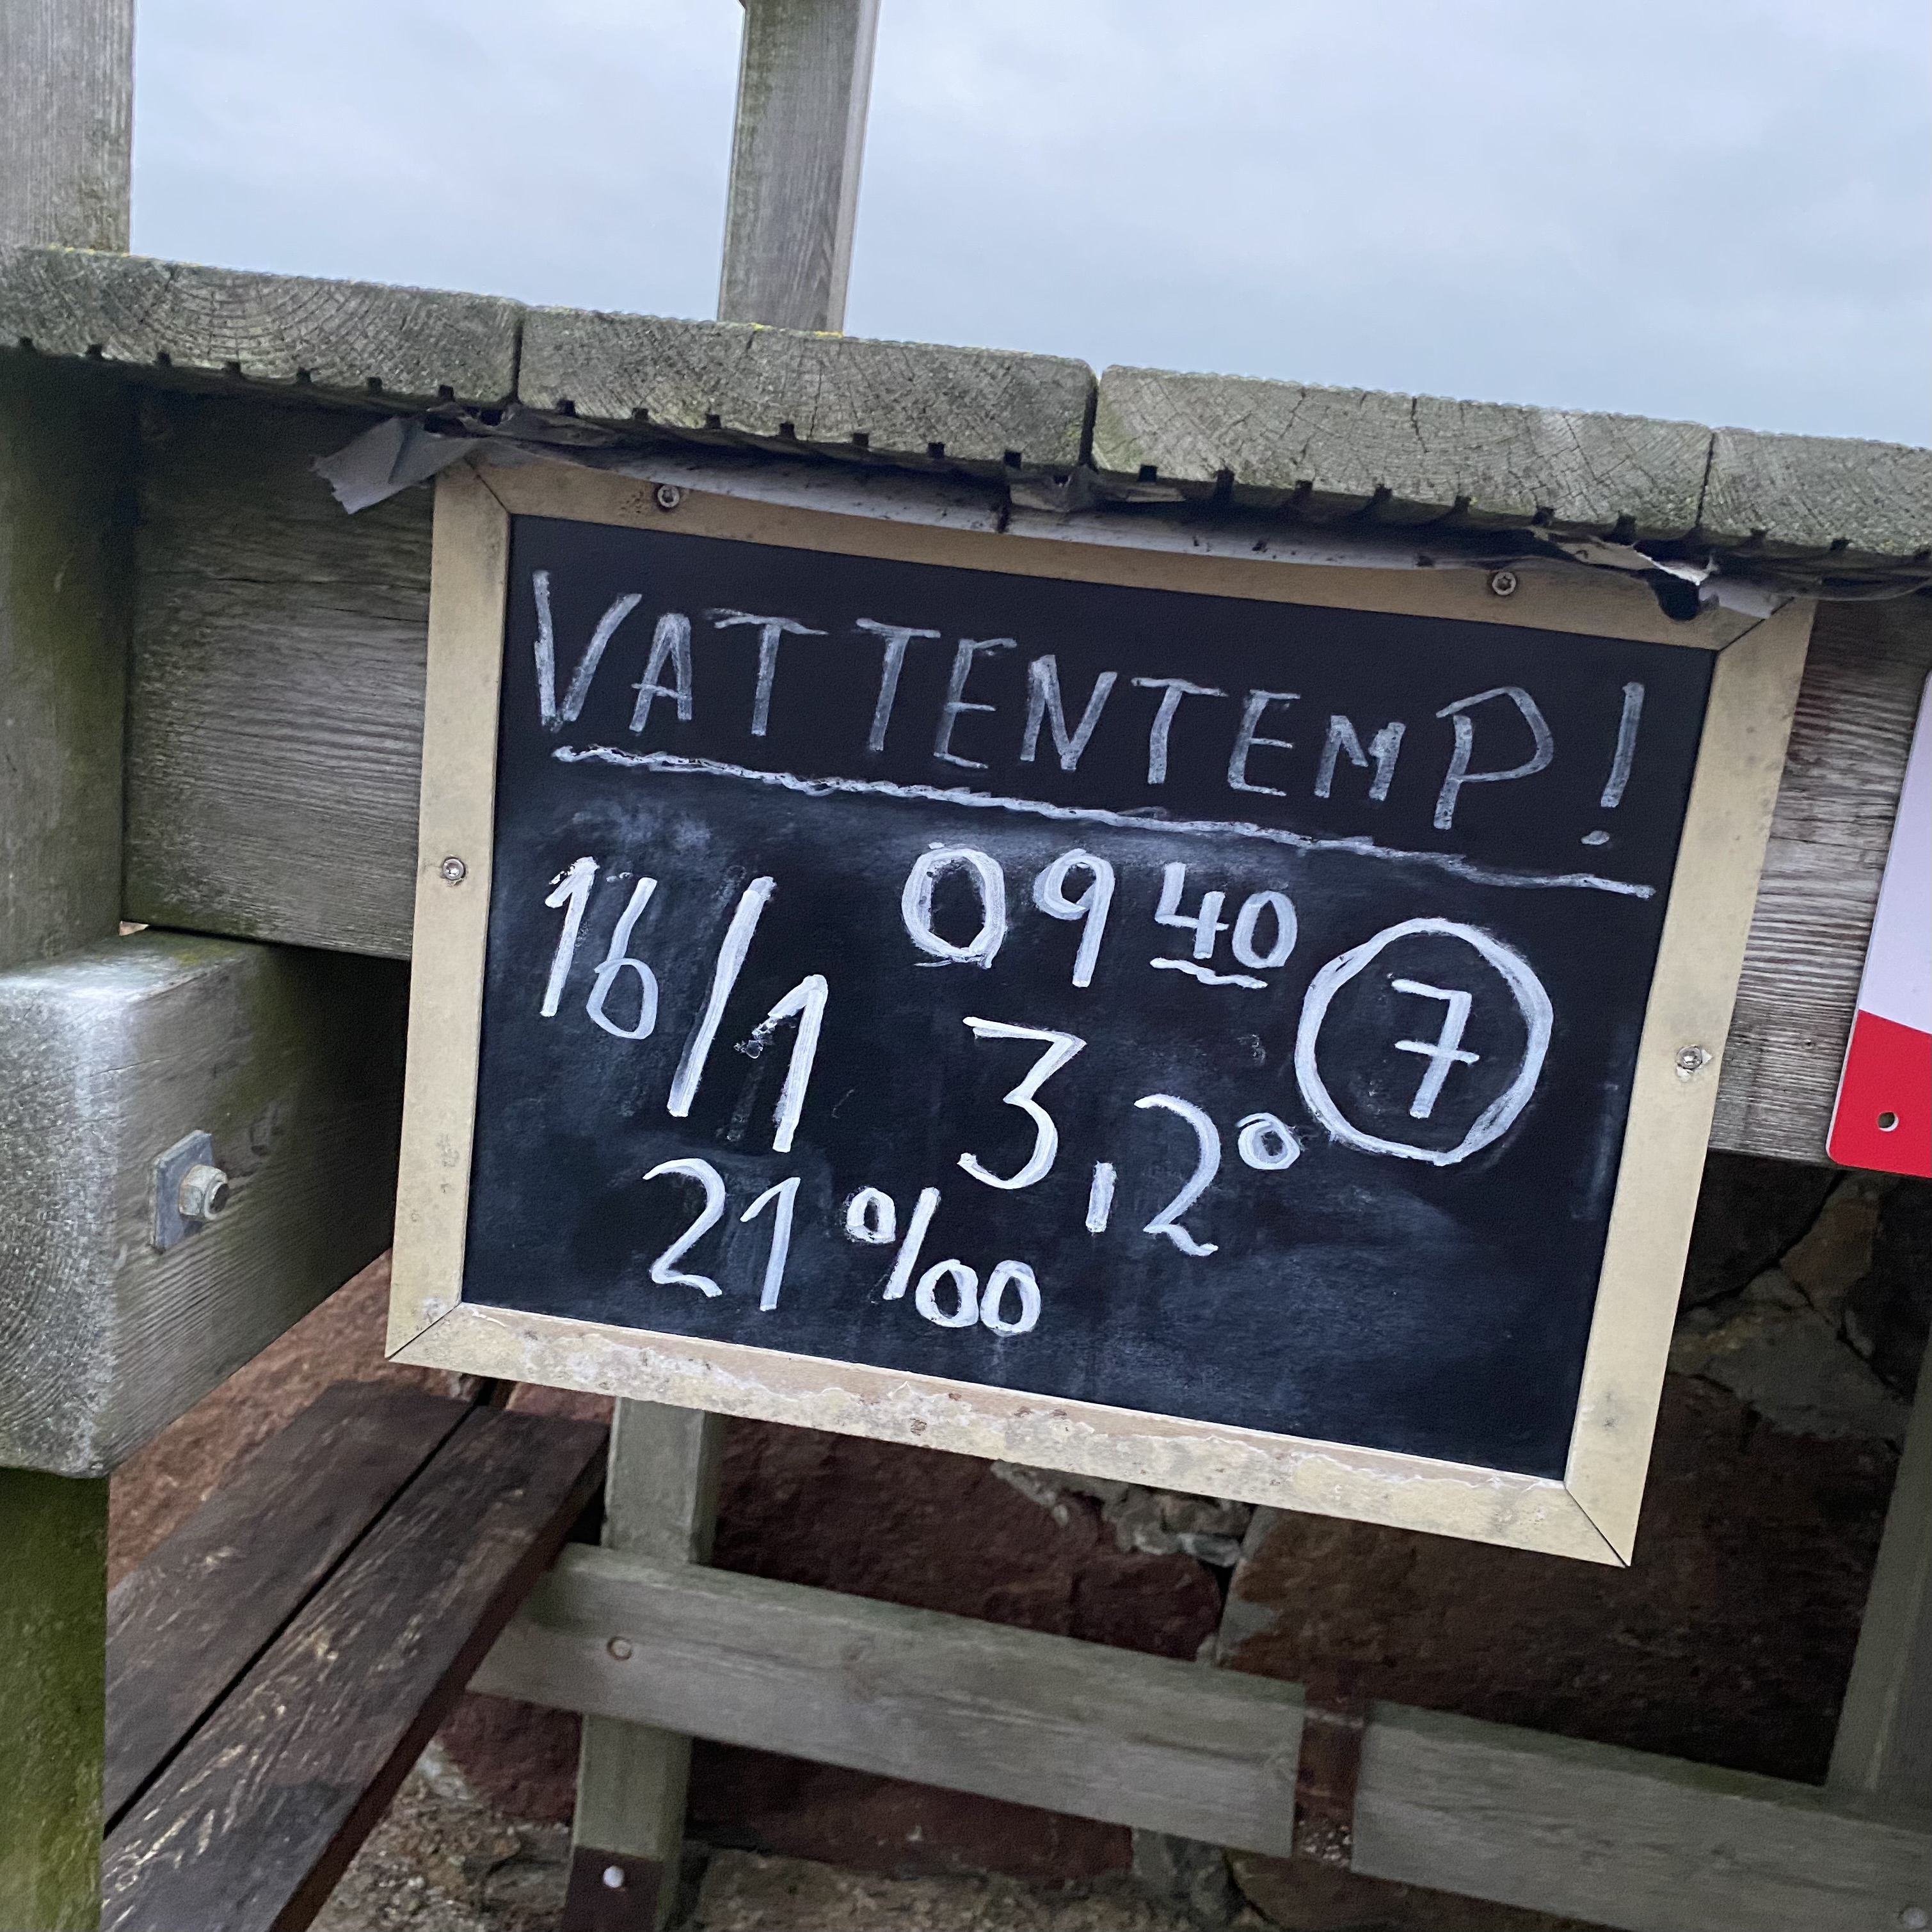 VATTENTEMP!
16/1 09 40 7
3,2°
21 o/oo